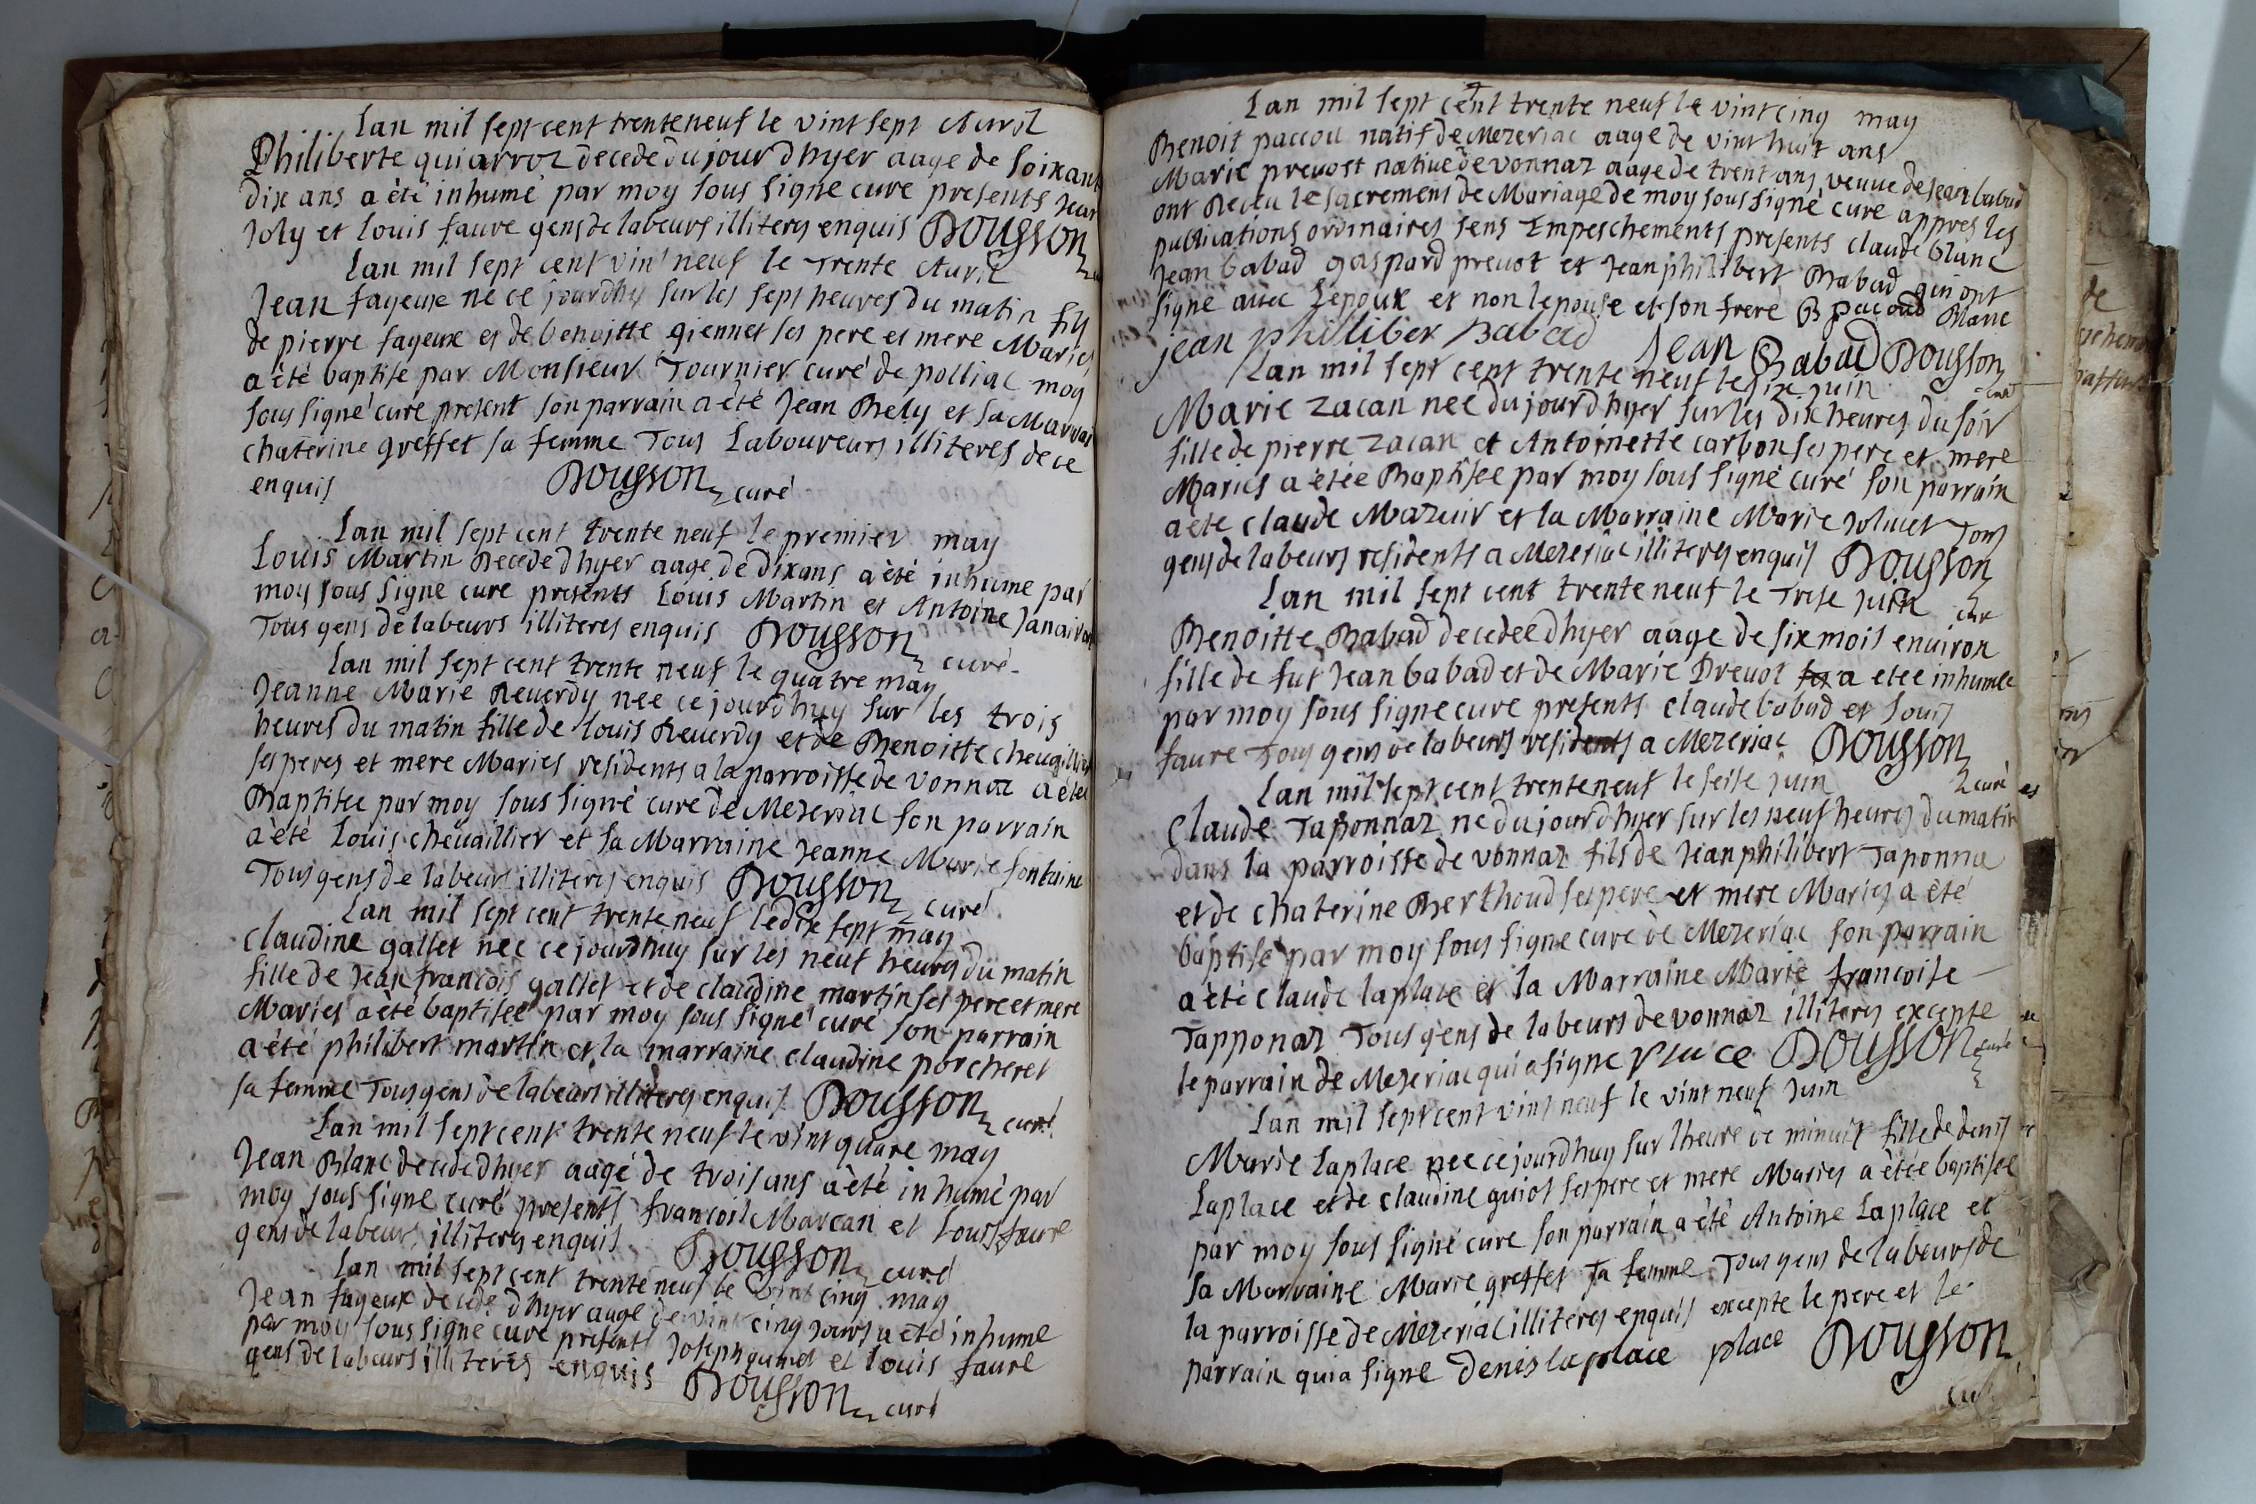 Lan mil sept cent trente neuf le vint sept Avril
Philiberte quiarroz decede du jour dhyer aage de soixant
dix ans a èté inhumé par moy sous signe cure presents Jean
Joly et louis faure gens de labeurs illiterés enquis Dousson
Lan mil sept cent vint neuf le Trente Avril
Jean fayeux né ce jourdhuy sur les sept heures du matin fils
de pierre fayeux et de benoitte giennet ses pere et mere Maries
a èté baptise par Monsieur Tournier curé de polliac moy
sous signé cure present son parrain a èté Jean Bely et sa Marrai
chaterine greffet sa femme Tous Laboureurs illiteres de ce
enquis Dousson curé
Lan mil sept cent trente neuf le premier may
Louis Martin decede dhyer aage de dixans a èté inhume par
moy sous signe cure presents Louis Martin et Antoine
Tous gens de labeurs illiteres enquis Dousson curé
Lan mil sept cent trente neuf le quatre may
Jeanne Marie Reuerdy nee ce jourdhuy sur les trois
heures du matin fille de louis Reuerdy et de Benoitte
ses peres et mere Maries residents a la parroisse de vonnaz a èteé
Baptisee par moy sous signé cure de Mezeriac son parrain
a èté Louis cheuaillier et sa Marraine Jeanne Marie fontaine
Tous gens de labeurs illiteres enquis Dousson curé
Lan mil sept cent trente neuf le dix sept may
claudine gallet nee ce jourdhuy sur les neuf heures du matin
fille de Jean francois gallet et de claudine martin ses pere et mere
Maries a èté baptisee par moy sous signé curé son parrain
a èté philibert martin et la marraine claudine porcheret
sa femme Tous gens de labeurs illiteres enquis Dousson curé
Lan mil sept cent trente neuf le vint quatre may
Jean Blanc decede dhyer aagé de trois ans a èté inhumé par
moy sous signe curé presents francois Marcan et louis faure
gens de labeurs illiteres enquis Dousson curé
Lan mil sept cent trente neuf le vint cinq may
Jean fayeux decede dhyer aage de vint cinq jours a èté inhume
par moy sous signe cure presents Joseph et louis faure
gens de labeurs illiteres enquis Dousson curé
Lan mil sept cent trente neuf le vint cinq may
Benoit paccou natif de Mezeriac aage de vint huit ans
Marie preuost natiue de vonnaz aage de trent ans veuue de Jean babad
ont Receu le sacrement de Mariage de moy sous signé cure appres les
publications ordinaires sens Empeschements presents claude blanc
Jean babad gaspard preuot et Jean philibert Babad qui ont
signe auec lepoux et non lepouse et son frere B pacoud Blanc
jean philiber Babad Jean Babad Dousson
Lan mil sept cent trente neuf le six juin curé
Marie zacan nee du jour dhyer sur les dix heures du soir
fille de pierre zacan et Antoinette carbon ses pere et mere
Maries a èteè Baptisee par moy sous signé curé son parrain
a èté claude Mazuir et la Marraine Marie Joluiet Tous
gens de labeurs residents a Mezeriac illiteres enquis Dousson
Lan mil sept cent trente neuf le Trese juin cure
Benoitte Babad decedee dhyer aage de six mois environ
fille de fut Jean babad et de Marie Preuot a etee inhumee
par moy sous signe cure presents claude babad et louis
faure Tous gens de labeurs residents a Mezeriac Dousson
Lan mil sept cent trente neuf le seise juin curé
Claude Taponnaz ne du jour dhyer sur les neuf heures du matin
dans la parroisse de vonnaz fils de Jean philibert Taponna
et de chaterine Berthoud ses pere et mere Maries a èté
baptisé par moy sous signe cure de Mezeriac son parrain
a èté claude laplace et la Marraine Marie francoise
Tapponaz Tous gens de labeurs de vonnaz illiteres excepte
le parrain de Mezeriac qui a signe place Dousson curé
Lan mil sept cent vint neuf le vint neuf Juin
Marie laplace nee ce jourdhuy sur lheure de minuit fille de denis
Laplace et de claudine guiot ses pere et mere Maries a ètée baptisee
par moy sous signé cure son parrain a èté Antoine Laplace et
sa Marraine Marie greffet sa femme Tous gens de labeurs de
la parroisse de Mezeriac illiteres enquis excepte le pere et le
parrain qui a signe denis laplace place Dousson